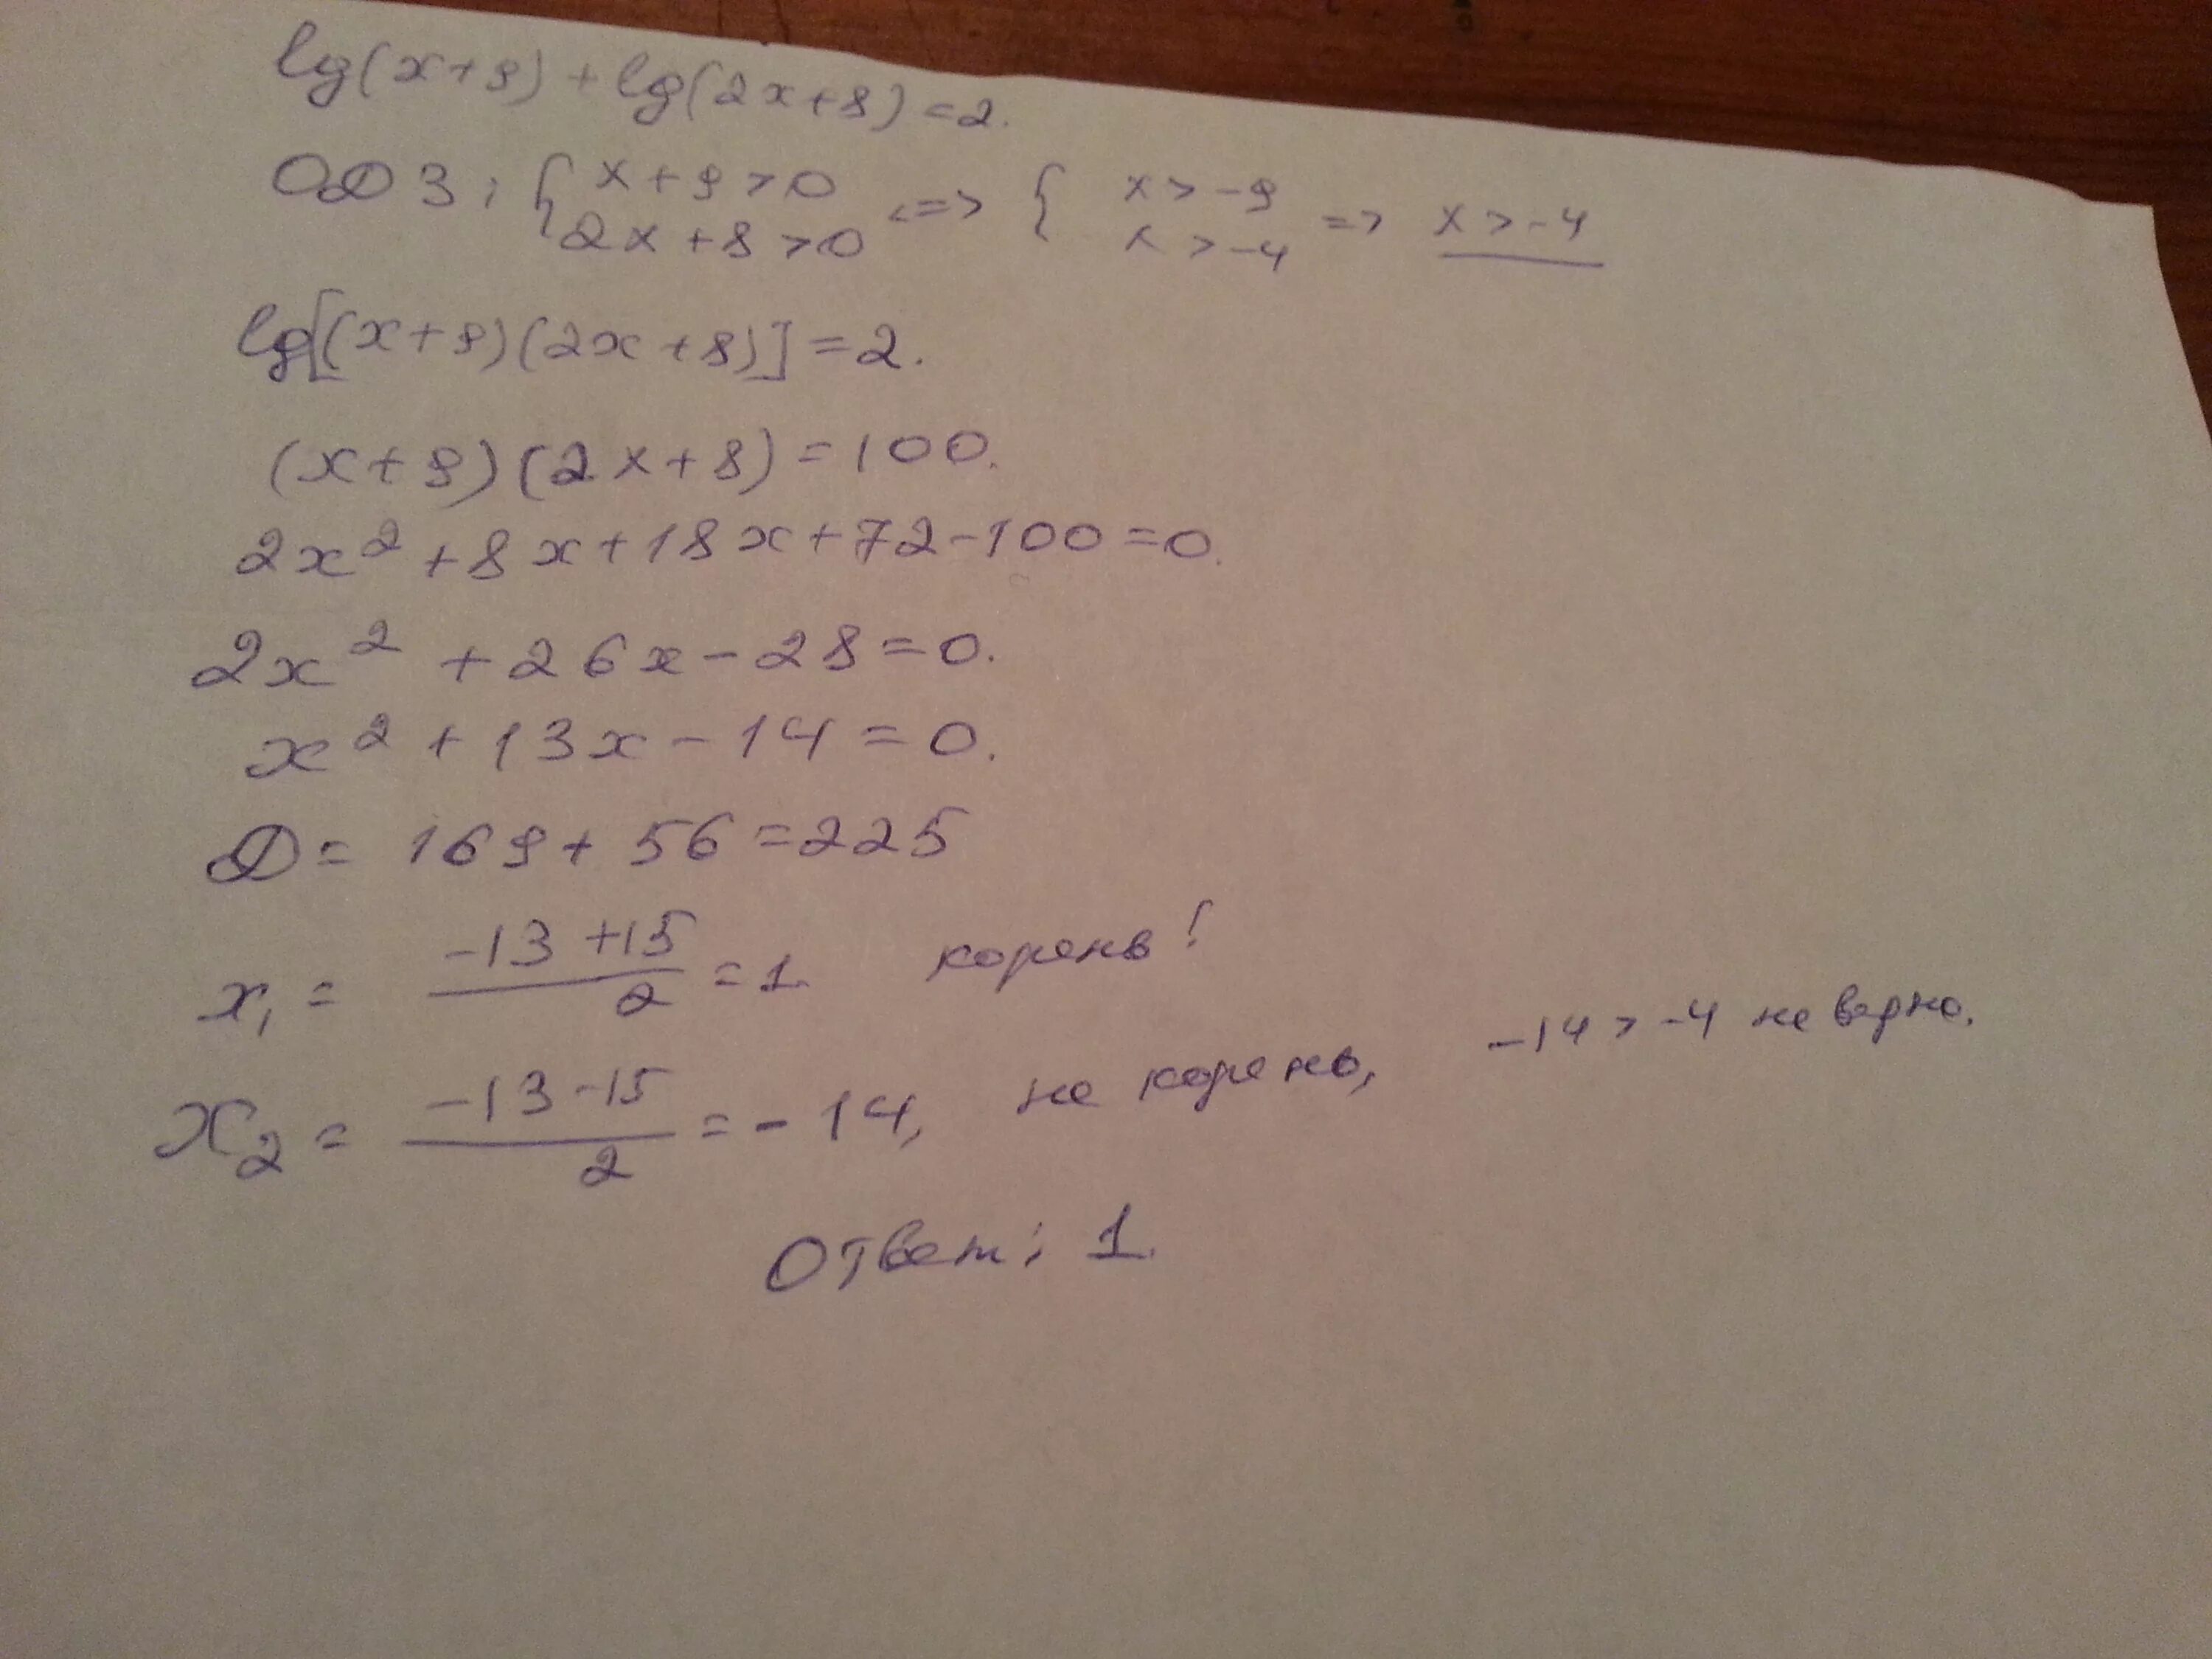 lg(x+9)+lg(2x+8)=2.
ОДЗ: { x+9>0 2x+8>0 <=> { x>-9 x>-4 => x>-4
lg[(x+9)(2x+8)]=2.
(x+9)(2x+8)=100.
2x²+8x+18x+72-100=0.
2x²+26x-28=0.
x²+13x-14=0.
D=169+56=225
x₁=(-13+15)/2=1. корень!
x₂=(-13-15)/2=-14, не корень, -14>-4 не верно.
Ответ: 1.